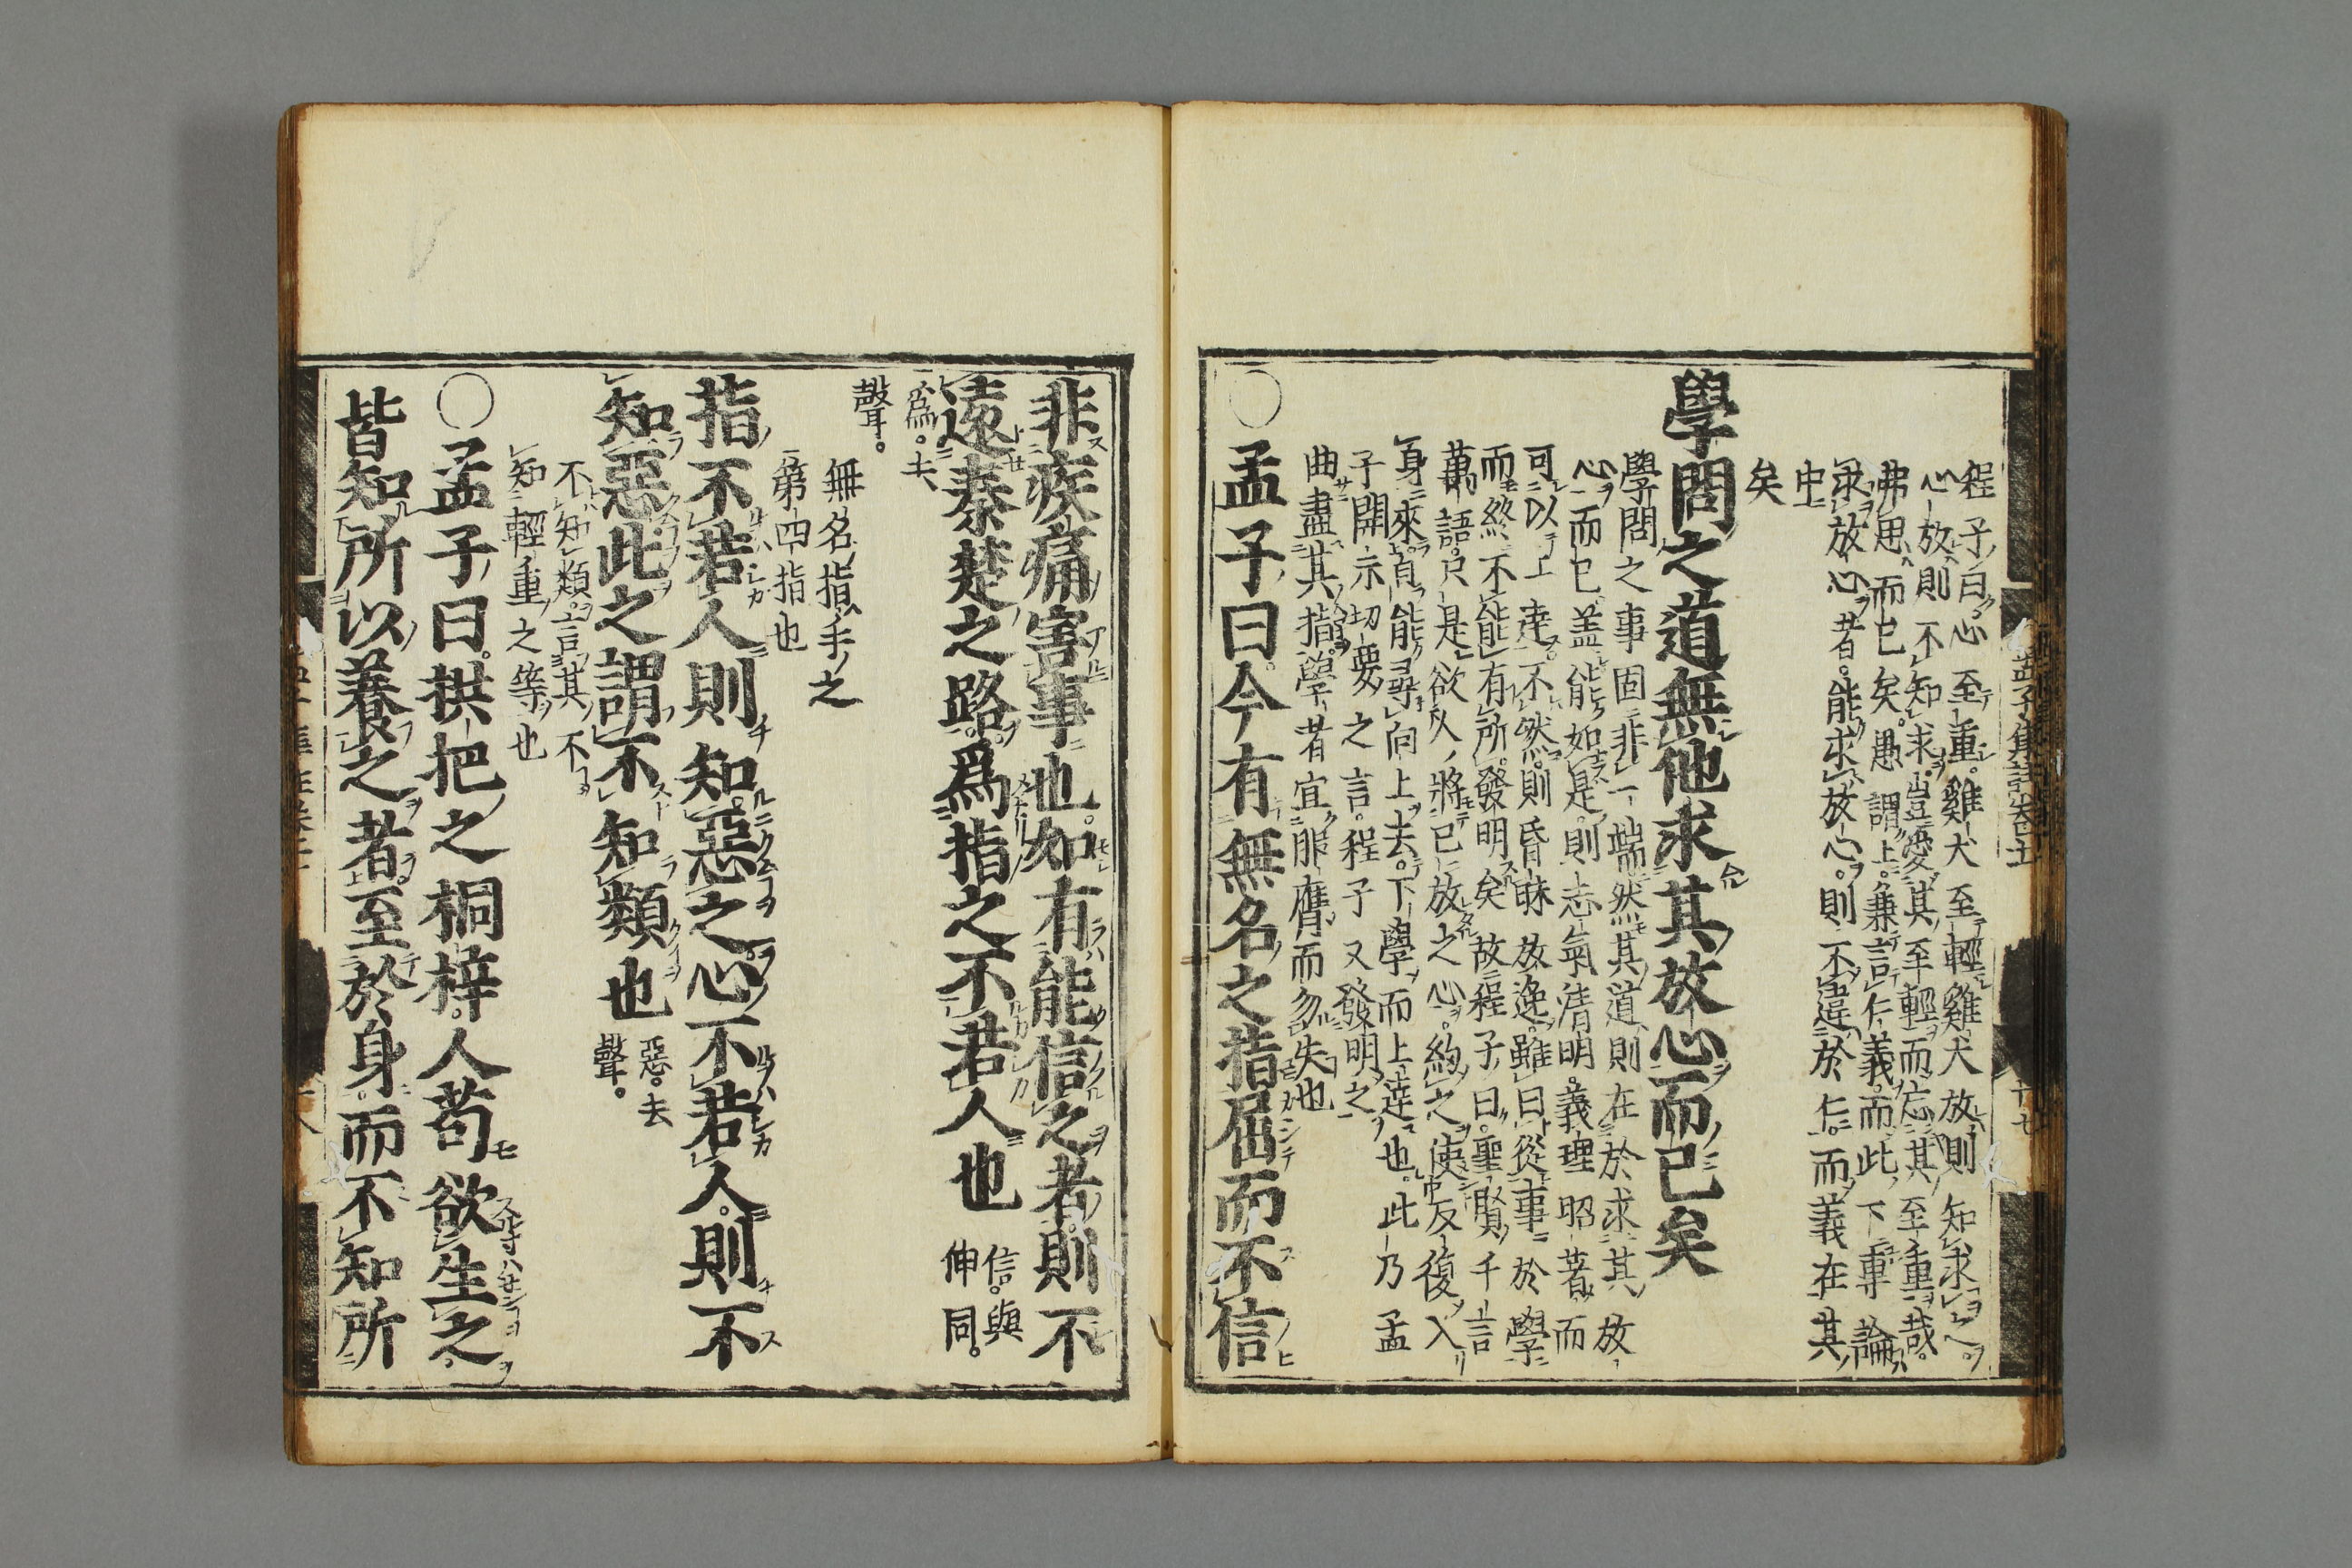 程子曰心至重雞犬至輕雞犬放則知求之
心放則不知求豈愛其至輕而忘其至重哉
弗思而已矣愚謂上兼言仁義而此下專論
求放心者能求放心則不違於仁而義在其
中
矣
學問之道無他求其放心而已矣
學問之事固非一端然其道則在於求其放
心而已盖能如是則志氣清明義理昭著而
可以上達不然則昏昧放逸雖曰從事於學
而終不能有所發明矣故程子曰聖賢千言
萬語只是欲人將已放之心約之使反復入
身來自能尋向上去下學而上達也此乃孟
子開示切要之言程子又發明之
曲盡其指學者宜服膺而勿失也
○孟子曰今有無名之指屈而不信
非疾痛害事也如有能信之者則不
遠秦楚之路爲指之不若人也信與
伸同
爲去
聲
無名指手之
第四指也
指不若人則知惡之心不若人則不
知惡此之謂不知類也惡去
聲
不知類言其不
知輕重之等也
○孟子曰拱把之桐梓人苟欲生之
皆知所以養之者至於身而不知所